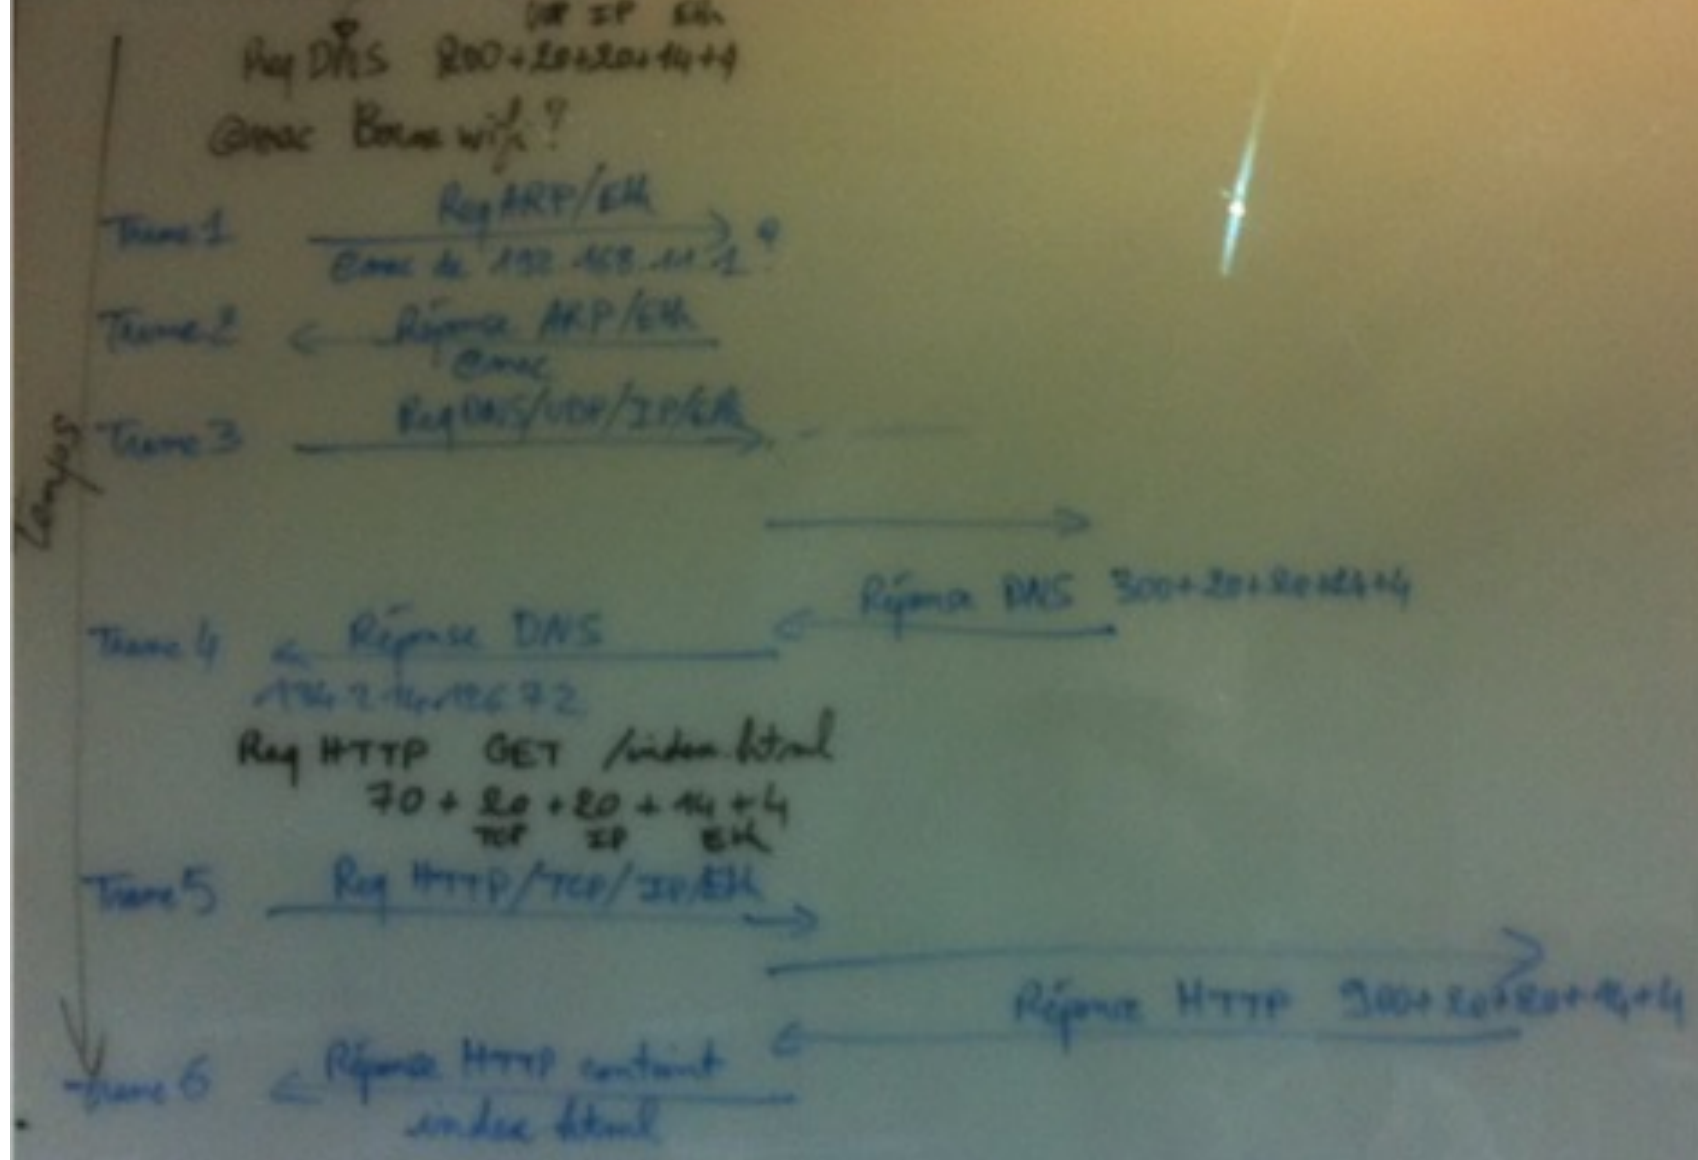 UDP IP Eth
Req DNS 200+20+20+14+4
@mac Borne wifi?
Trame 1 Req ARP/Eth
@mac de 192.168.11.1 ?
Trame 2 Réponse ARP/Eth
@mac
Req DNS/UDP/IP/Eth
Trame 3
Temps
Réponse DNS 300+20+20+24+4
Trame 4 Réponse DNS
Req HTTP GET /index.html
70 + 20 + 20 + 14 + 4
TCP IP Eth
Trame 5 Req HTTP/TCP/IP/Eth
Réponse HTTP 900+20+20+14+4
Trame 6 Réponse HTTP contient
index.html